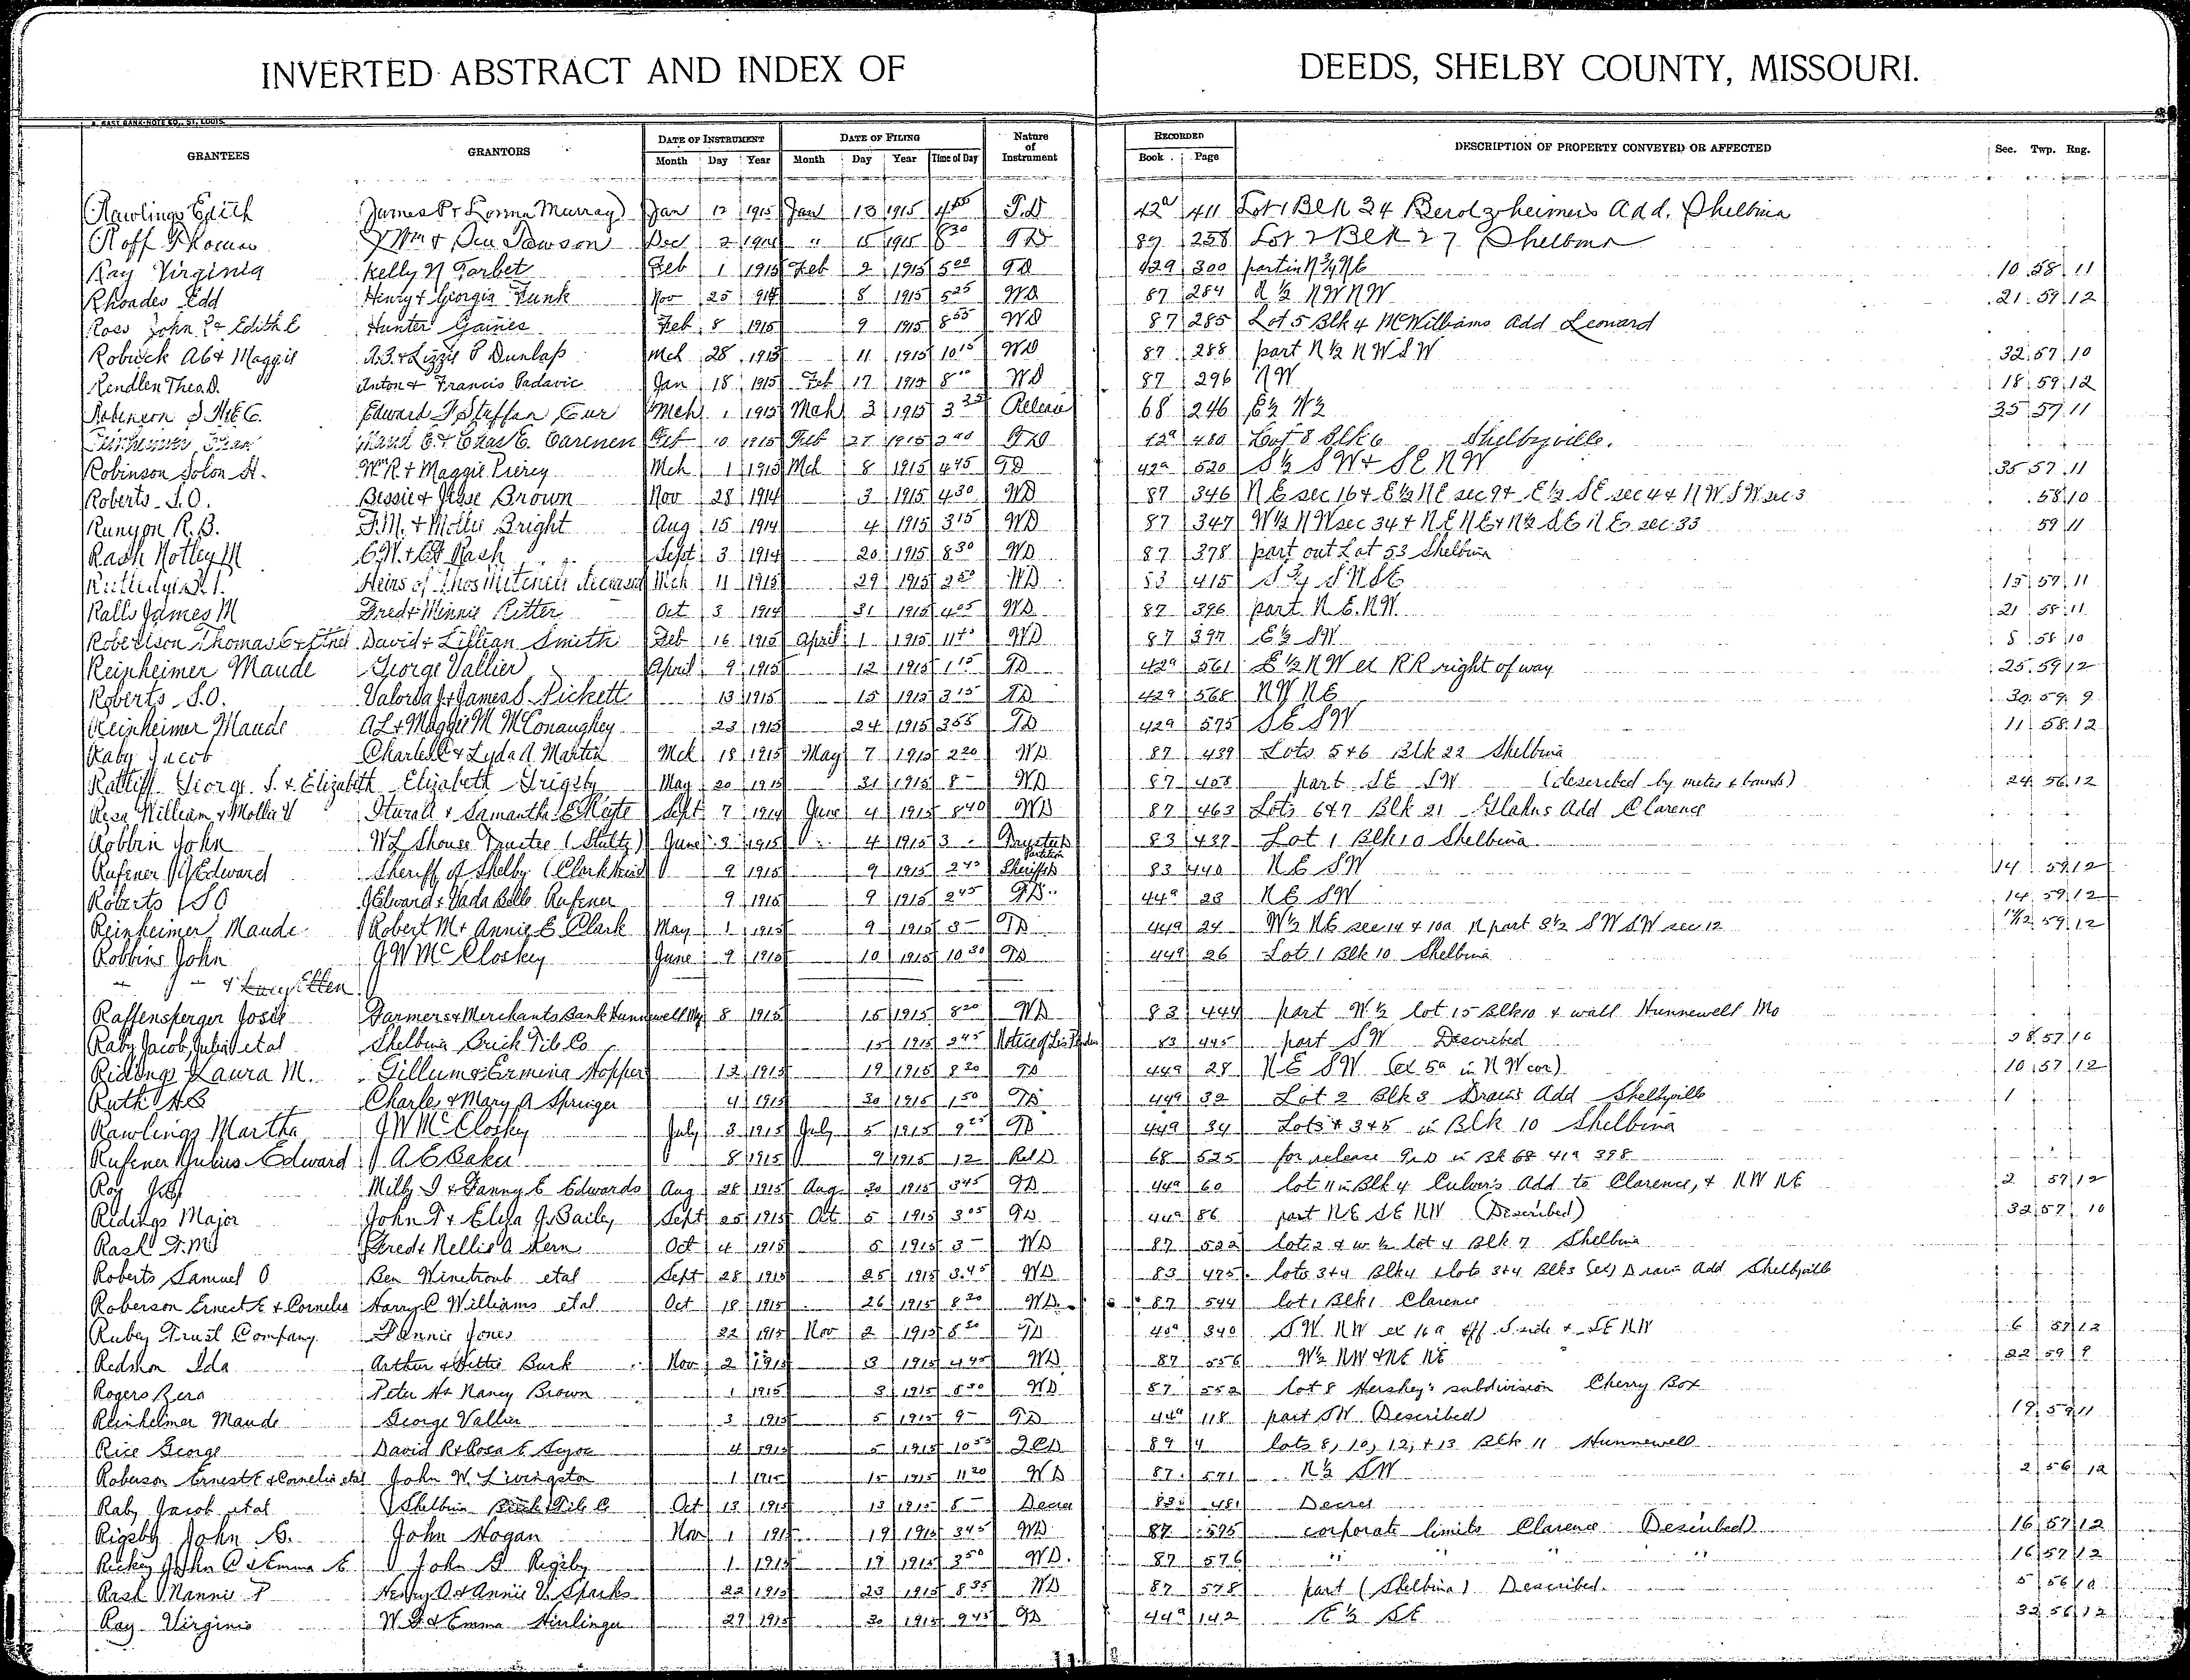 INVERTED ABSTRACT AND INDEX OF DEEDS, SHELBY COUNTY, MISSOURI.
GRANTEES GRANTORS DATE OF INSTRUMENT DATE OF FILING Nature of Instrument RECORDED DESCRIPTION OF PROPERTY CONVEYED OR AFFECTED Sec. Twp. Rng.
Month Day Year Month Day Year Time of Day Book Page
Rawlings Edith James P & Lonna Murray Jan 12 1915 Jan 13 1915 T.D 42a 411 Lot 1 Blk 34 Berolzheimers Add. Shelbina
Roff Thomas Wm & Dawson Dec 2 1914 " 15 1915 8 30 TD 89 258 Lot 2 Blk 27 Shelbina
Ray Virginia Kelly N Forbet Feb 1 1915 Feb 2 1915 5 00 TD 429 300 part in N 3/4 NE 10 58 11
Rhoades Edd Henry & Georgia Funk Nov 25 1914 8 1915 5 25 WD 87 284 N ½ NW NW 21 59 12
Ross John P & Edith E Hunter Gaines Feb 8 1915 9 1915 8 55 WD 87 285 Lot 5 Blk 4 McWilliams Add Leonard
Robuck Ab & Maggie A.J. & Lizzie P Dunlap Mch 28 1913 11 1915 10 15 WD 87 288 part N ½ NW SW 32 57 10
Rendlen Theo. D. Anton & Francis Padavic Jan 18 1915 Feb 17 1915 8 WD 87 296 NW 18 59 12
Robinson Edward J Steffan Cur Mch 1 1915 Mch 3 1915 3 35 Release 68 246 E½ W½ 35 57 11
Maud E & Chas E. Carmen Feb 10 1915 Feb 27 1915 TD 42a 480 Lot 8 Blk 6 Shelbyville.
Robinson Solon H. Wm R & Maggie Piercy Mch 1 1915 Mch 8 1915 4 45 TD 42a 520 S½ SW & SE NW 35 57 11
Roberts S.O. Bessie & Jesse Brown Nov 28 1914 3 1915 4 30 WD 87 346 NE sec 16 & E½ NE sec 9 & E½ SE sec 4 & NW SW sec 3 58 10
Runyon R.B. F.M. & Mollie Bright Aug 15 1914 4 1915 3 15 WD 87 347 W½ NW sec 34 & NE NE & N½ SE NE sec 33 59 11
Rash Motley M Rash Sept 3 1914 20 1915 8 30 WD 87 378 part out Lot 53 Shelbina
Heirs of Thos Mitchell deceased Mch 11 1915 29 1915 WD 83 415 15 57 11
Ralls James M Fred & Minnie Ritter Oct 3 1914 31 1915 4 05 WD 87 396 part NE. NW. 21 58 11
Robertson Thomas C & David & Lillian Smith Feb 16 1915 April 1 1915 WD 87 397 E½ SW 8 58 10
Reinheimer Maude George Vallier April 9 1915 12 1915 1 15 TD 429 561 E ½ NW ex RR right of way 25 59 12
Roberts S.O. Valorda J & James S. Pickett 13 1915 15 1915 3 15 TD 429 568 NW NE 30 59 9
Reinheimer Maude AL & Maggie M McConaughey 23 1915 24 1915 3 55 TD 429 575 SE SW 11 58 12
Raby Jacob Charles C & Lyda A Martin Mch 18 1915 May 7 1915 2 20 WD 87 439 Lots 5 & 6 Blk 22 Shelbina
Ratliff George S. & Elizabeth Elizabeth Grigsby May 20 1915 31 1915 8 – WD 87 403 part SE SW (described by metes & bounds) 24 56 12
Resa William & Mollie V Sturall & Samantha E Waste Sept 7 1914 June 4 1915 8 40 WD 87 463 Lots 6 & 7 Blk 21 Glahns Add Clarence
Robbin John WL Shouse Trustee (Stultz) June 3 1915 4 1915 3 – Trustees 83 437 Lot 1 Blk 10 Shelbina
Rufener J Edward Sheriff of Shelby (Clark 9 1915 9 1915 2 45 Partition Sheriffs 83 440 NE SW 14 59 12
Roberts SO J Edward & Vada Belle Rufener 9 1915 9 1915 2 45 TD 44a 23 NE SW 14 59 12
Reinheimer Maude Robert M & Annie E Clark May 1 1915 9 1915 3 – TD 44a 24 W½ NE sec 14 & 10a N part S½ SW SW sec 12 59 12
Robbins John JW McCloskey June 9 1915 10 1915 10 30 TD 44a 26 Lot 1 Blk 10 Shelbina
" " & Ellen
Raffensperger Josie Farmers & Merchants Bank Hunnewell Mo 8 1915 15 1915 8 20 WD 83 444 part W½ lot 15 Blk 10 & wall Hunnewell Mo
Raby Jacob, Julia et al Shelbina Brick Tile Co 15 1915 2 45 Notice of Lis Pendens 83 445 part SW Described 28 57 10
Ridings Laura M. Tillum & Ermina Hopper 12 1915 19 1915 8 20 TD 44a 28 NE SW (ex 5a in NW cor) 10 57 12
Ruth HB Charles & Mary A Springer 4 1915 30 1915 1 50 TD 44a 32 Lot 2 Blk 3 Drains Add Shelbyville
Rawlings Martha JW McCloskey July 3 1915 July 5 1915 TD 44a 34 Lots 4 3 & 5 in Blk 10 Shelbina
Rufener Julius Edward A E Baker 8 1915 9 1915 12 Rel D 68 525 for release T.D in Bk 68 41a 398
Roy Milby J & Fanny E Edwards Aug 28 1915 Aug 30 1915 3 45 TD 44a 60 lot 11 in Blk 4 Culver's Add to Clarence, & NW NE 2 57 12
Ridings Major John T & Eliza J Bailey Sept 25 1915 Oct 5 1915 3 05 TD 44a 86 part NE SE NW (Described) 32 57 10
Rash F.M. Fred & Nellie A Kern Oct 4 1915 5 1915 3 – WD 87 522 lot 2 & w ½ lot 4 Blk 7 Shelbina
Roberts Samuel O Ben Winetroub et al Sept 28 1915 25 1915 3.45 WD 83 475 lots 3 & 4 Blk 4 & lots 3 & 4 Blk 5 Drain Add Shelbyville
Roberson Ernest E & Cornelia Harry C Williams et al Oct 18 1915 26 1915 8 20 WD 87 544 lot 1 Blk 1 Clarence
Rubey Trust Company Fannie Jones 22 1915 Nov 2 1915 8 30 TD 40a 340 SW NW ex 16a off S side & SE NW 6 57 12
Redmon Ida Arthur & Hettie Burk Nov 2 1915 3 1915 4 45 WD 87 556 W½ NW & NE NE 22 59 9
Rogers Zera Peter H & Nancy Brown 1 1915 3 1915 8 30 WD 87 552 lot 8 Hershey's subdivision Cherry Box
Reinheimer Maude George Vallier 3 1915 5 1915 9 – TD 44a 118 part SW (Described) 19 59 11
Rice George David R & Rosa E 4 1915 5 1915 QCD 89 4 lots 8, 10, 12, & 13 Blk 11 Hunnewell
Roberson Ernest E & Cornelia et al John W. Livingston 1 1915 15 1915 11 20 WD 87 571 N½ SW 2 56 12
Raby Jacob et al Shelbina Brick & Tile Co Oct 13 1915 13 1915 8 – Decree 83 481 Decree
Rigsby John G. John Hogan Nov 1 1915 19 1915 3 45 WD 87 575 corporate limits Clarence (Described) 16 57 12
Rickey John C & Emma E John G Rigsby 1 1915 19 1915 3 50 WD. 87 576 " " " " 16 57 12
Rash Nannie P Henry A & Annie V. Sparks 22 1915 23 1915 8 35 WD 87 578 part (Shelbina) Described. 5 56 10
Ray Virginia W. J & Emma Hirlinger 29 1915 30 1915 9 45 TD 44a 142 E½ SE 32 56 12